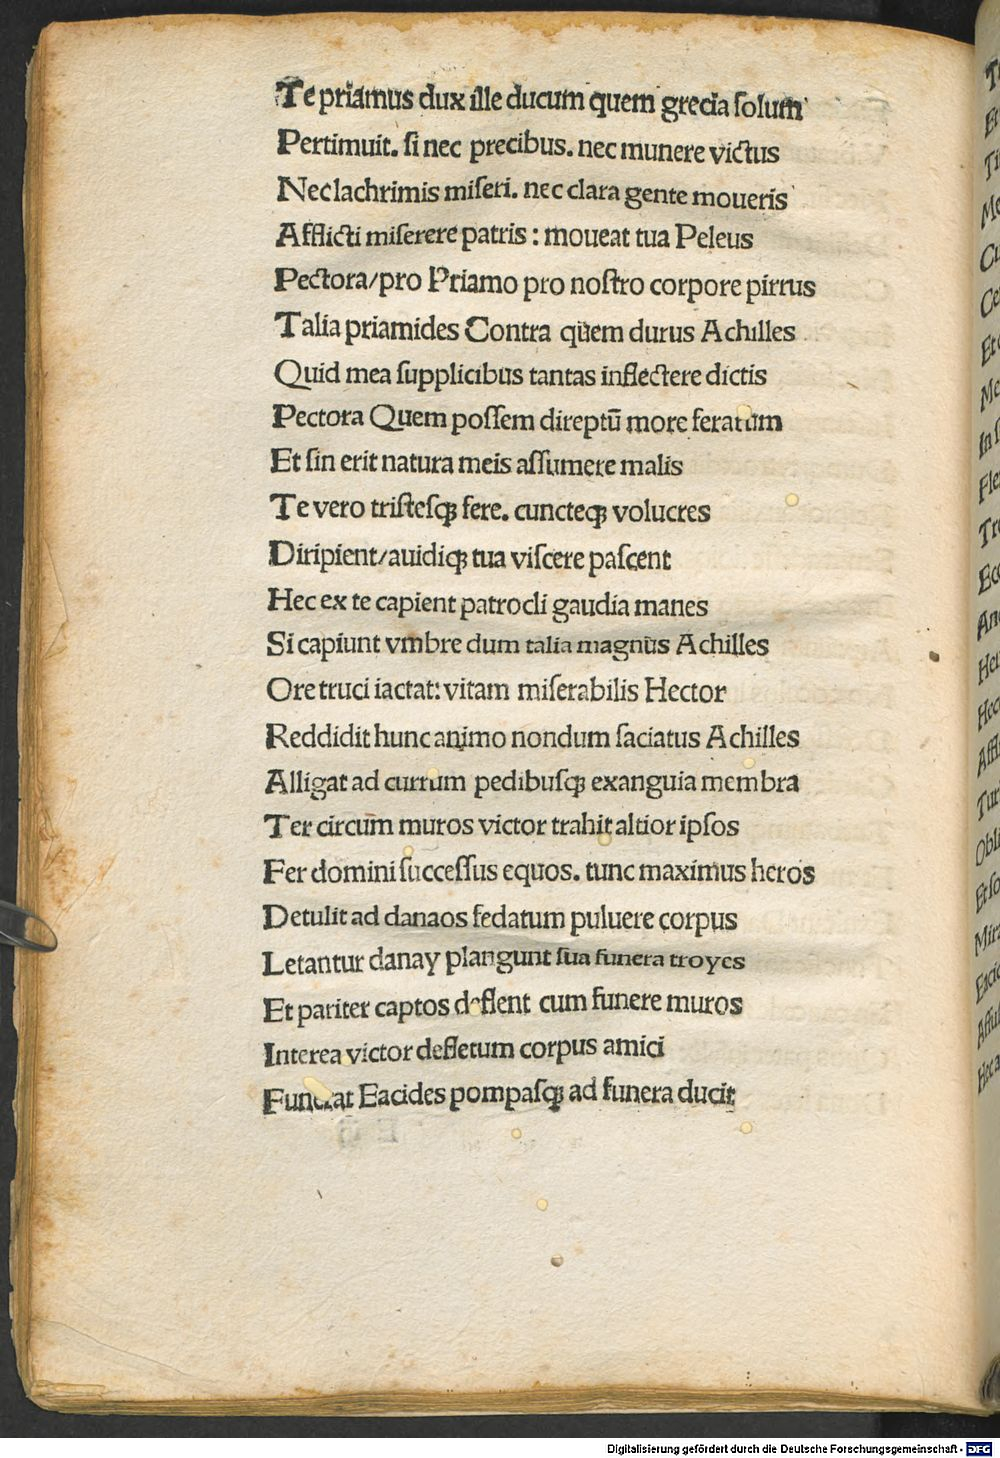 Te priamus dux ille ducum quem grecia solum
Pertimuit. si nec precibus. nec munere victus
Nec lachrimis miseri. nec clara gente moueris
Afflicti miserere patris : moueat tua Peleus
Pectora/pro Priamo pro nostro corpore pirrus
Talia priamides Contra quem durus Achilles
Quid mea supplicibus tantas inflectere dictis
Pectora Quem possem direptū more ferarum
Et sin erit natura meis assumere malis
Te vero tristesqꝫ fere. cuncteqꝫ volucres
Diripient/auidiqꝫ tua viscere pascent
Hec ex te capient patrocli gaudia manes
Si capiunt vmbre dum talia magnus Achilles
Ore truci iactat: vitam miserabilis Hector
Reddidit hunc animo nondum saciatus Achilles
Alligat ad currum pedibusqꝫ exanguia membra
Ter circum muros victor trahit altior ipsos
Fer domini successus equos. tunc maximus heros
Detulit ad danaos fedatum puluere corpus
Letantur danay plangunt sua funera troyes
Et pariter captos deflent cum funere muros
Interea victor defletum corpus amici
Funerat Eacides pompasqꝫ ad funera ducit
Digitalisierung gefördert durch die Deutsche Forschungsgemeinschaft - DFG